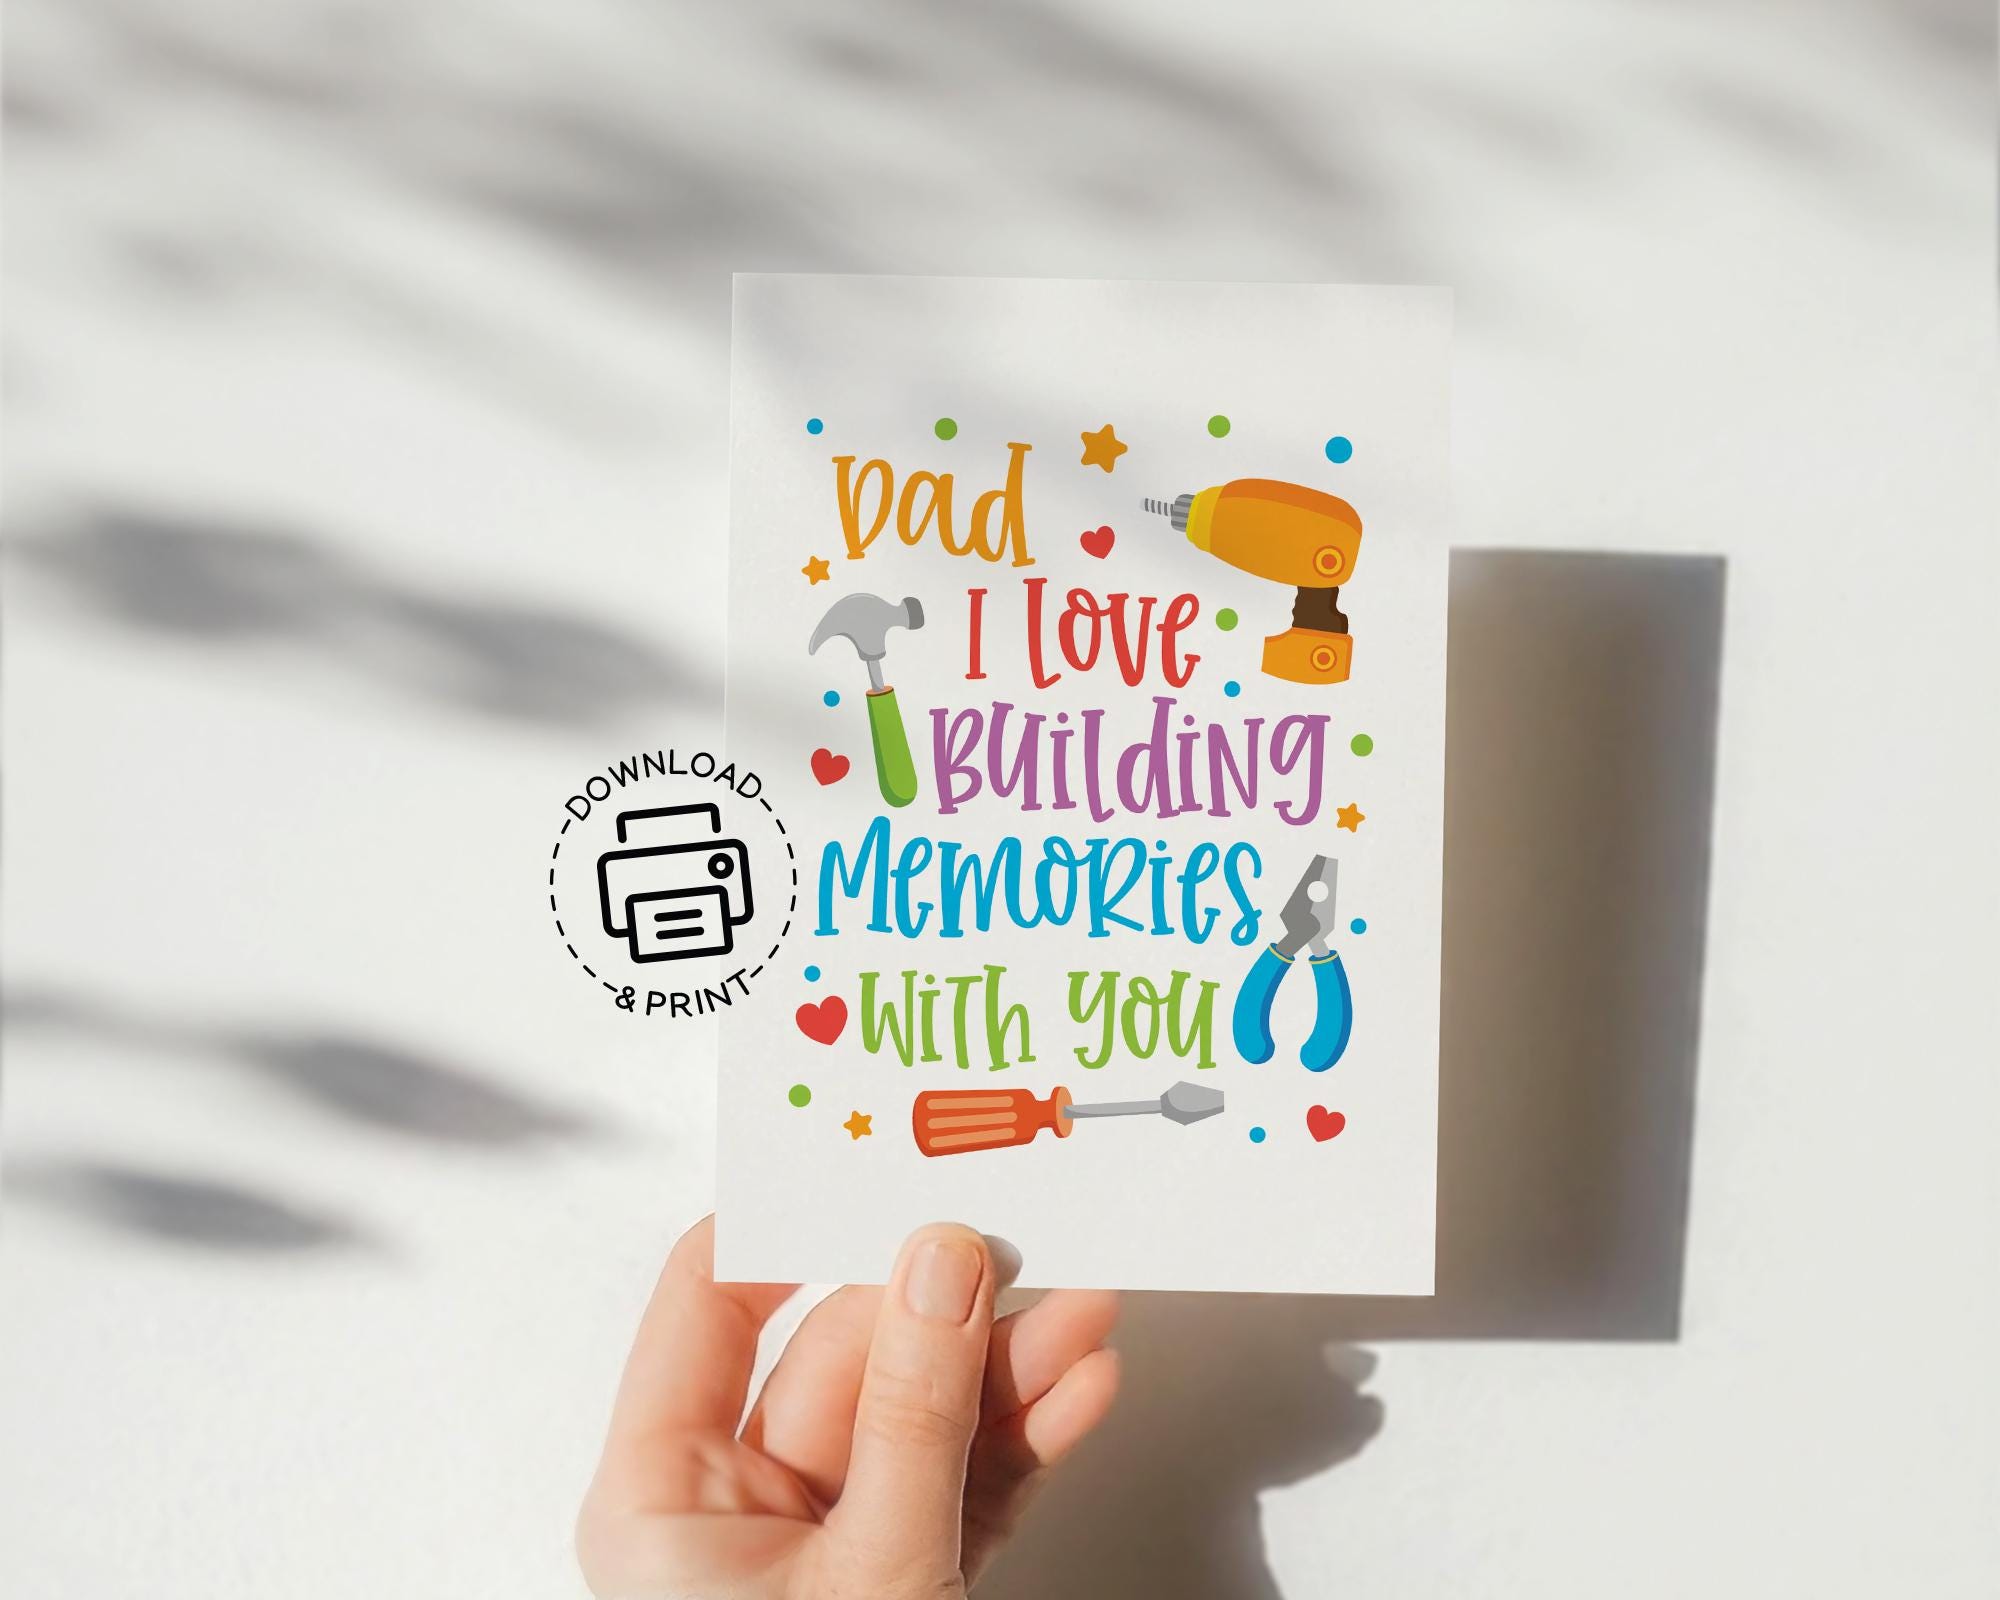 Dad
I love
Building
Memories
with you
DOWNLOAD
& PRINT